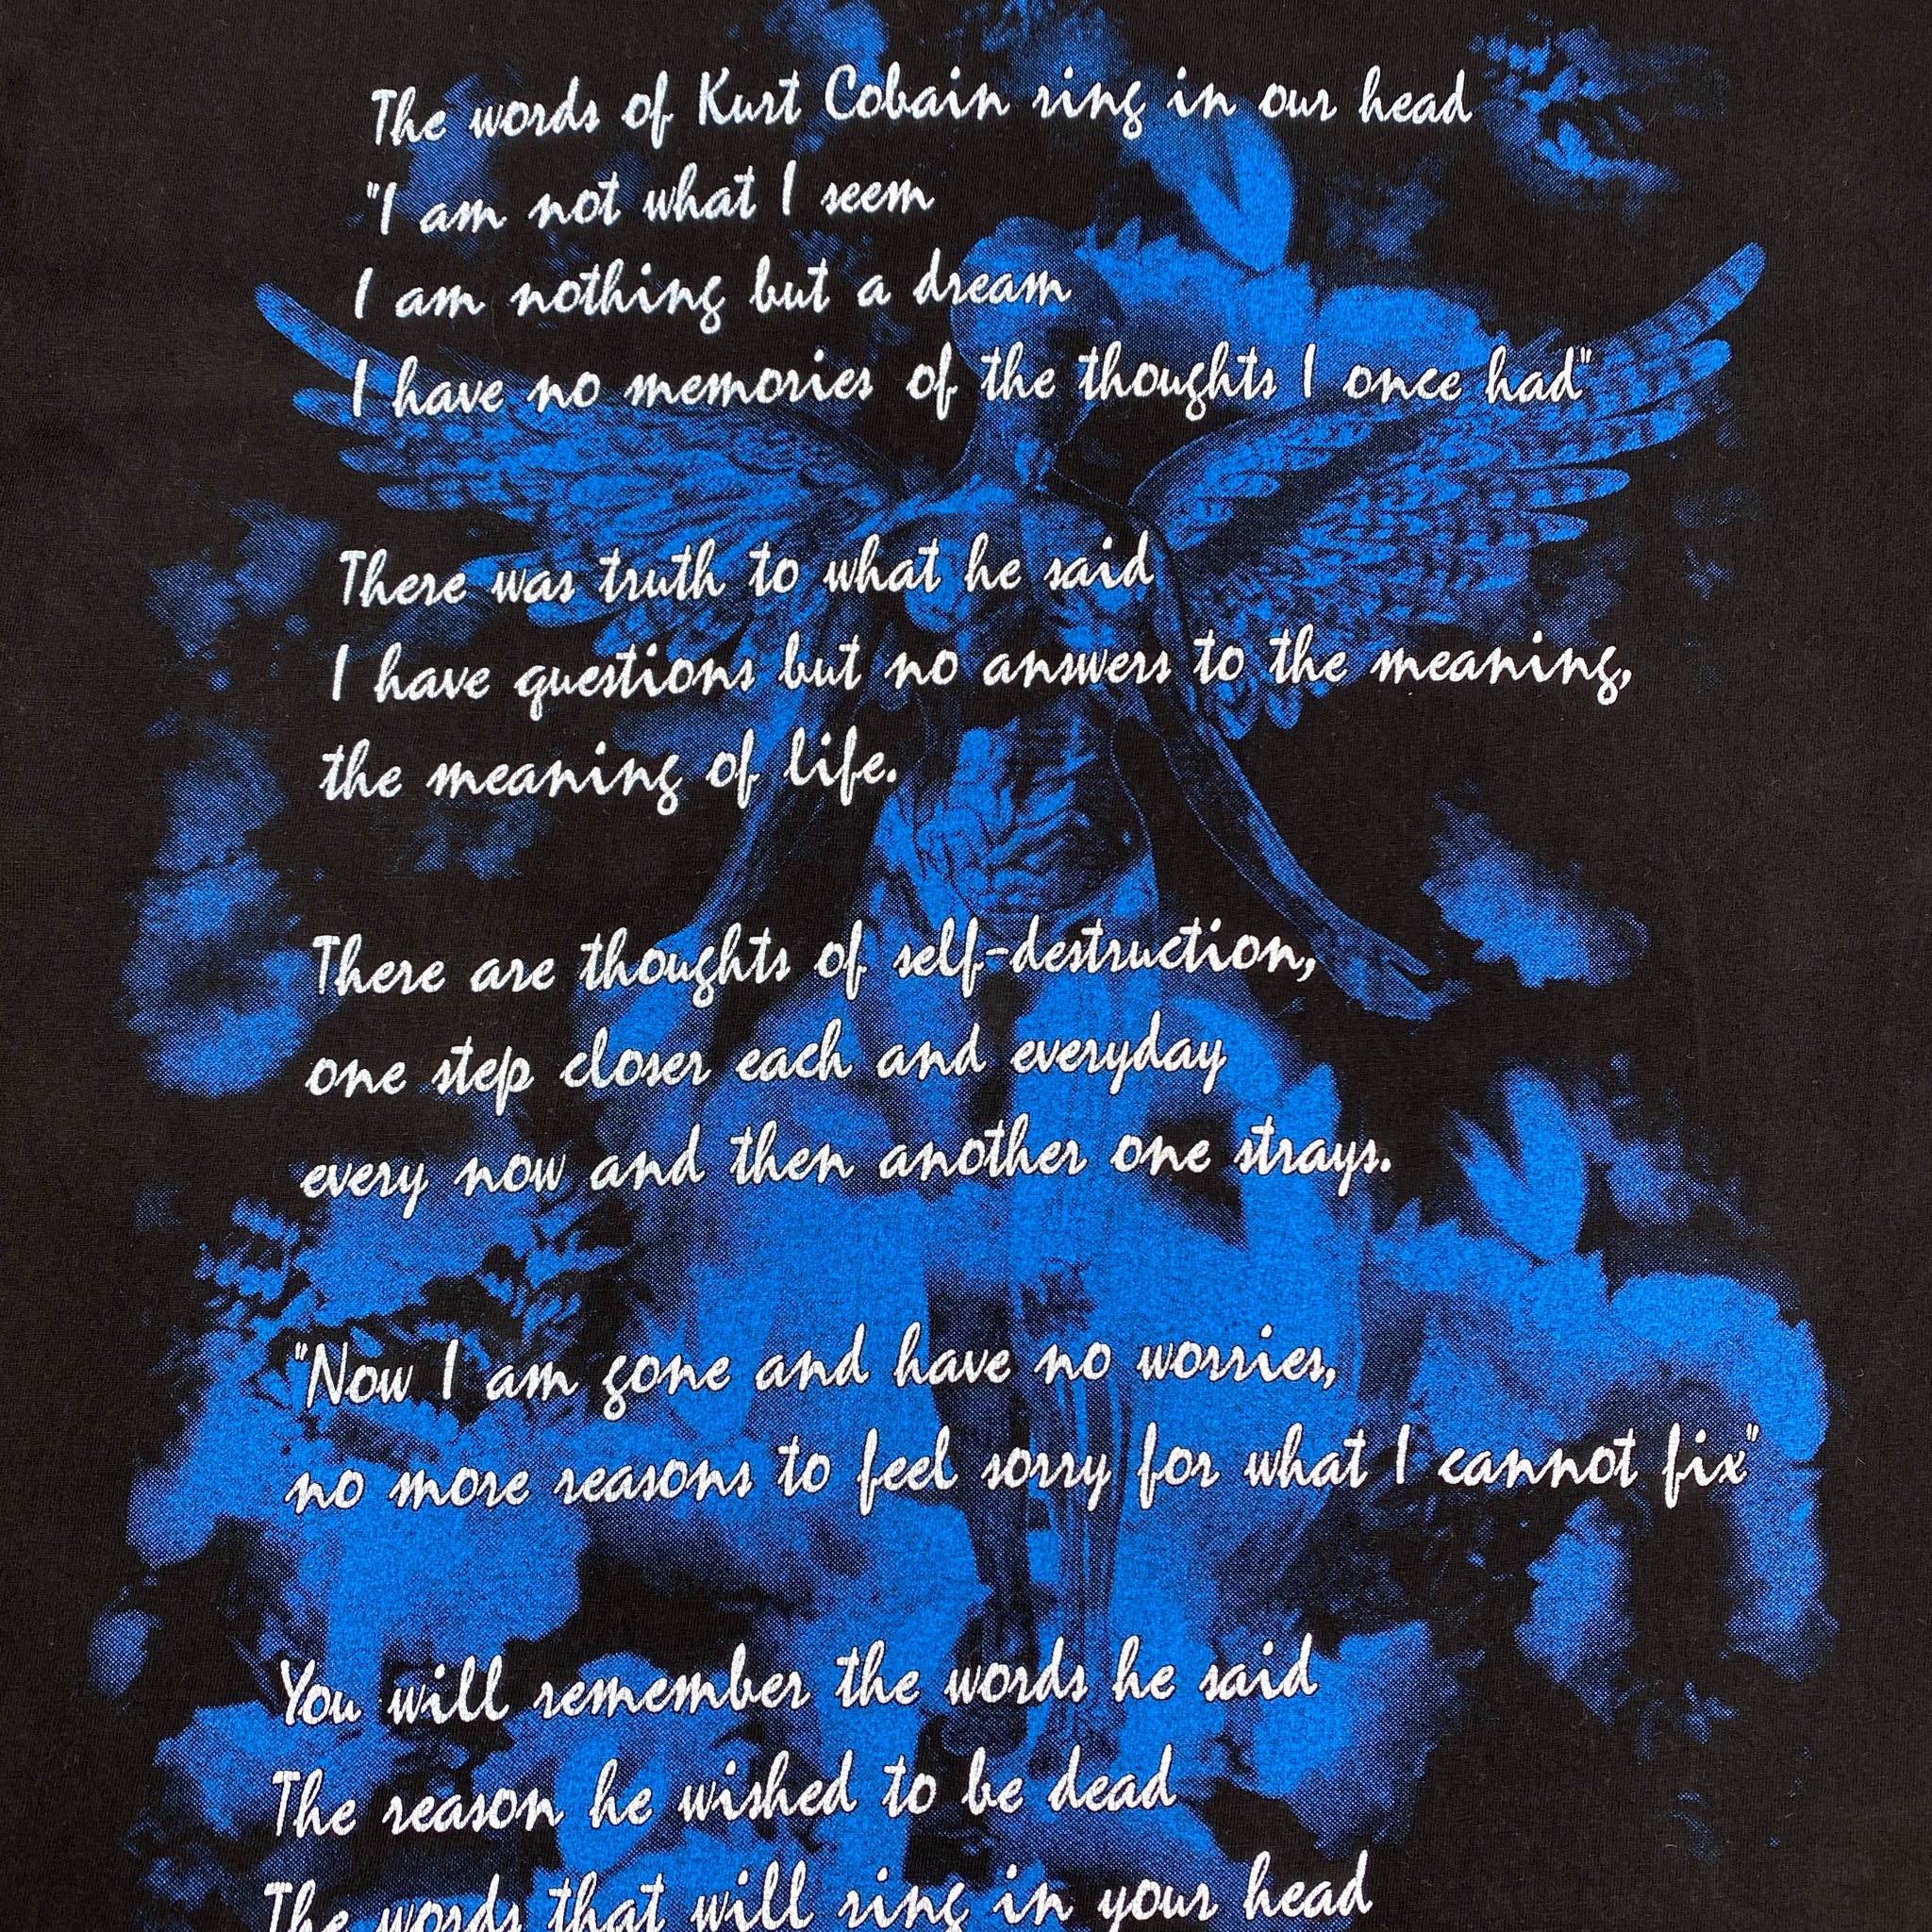 The words of Kurt Cobain ring in our head
"I am not what I seem
I am nothing but a dream
I have no memories of the thoughts I once had"
There was truth to what he said
I have questions but no answers to the meaning,
the meaning of life.
There are thoughts of self-destruction,
one step closer each and everyday
every now and then another one strays.
"Now I am gone and have no worries,
no more reasons to feel sorry for what I cannot fix"
You will remember the words he said
The reason he wished to be dead
The words that will ring in your head